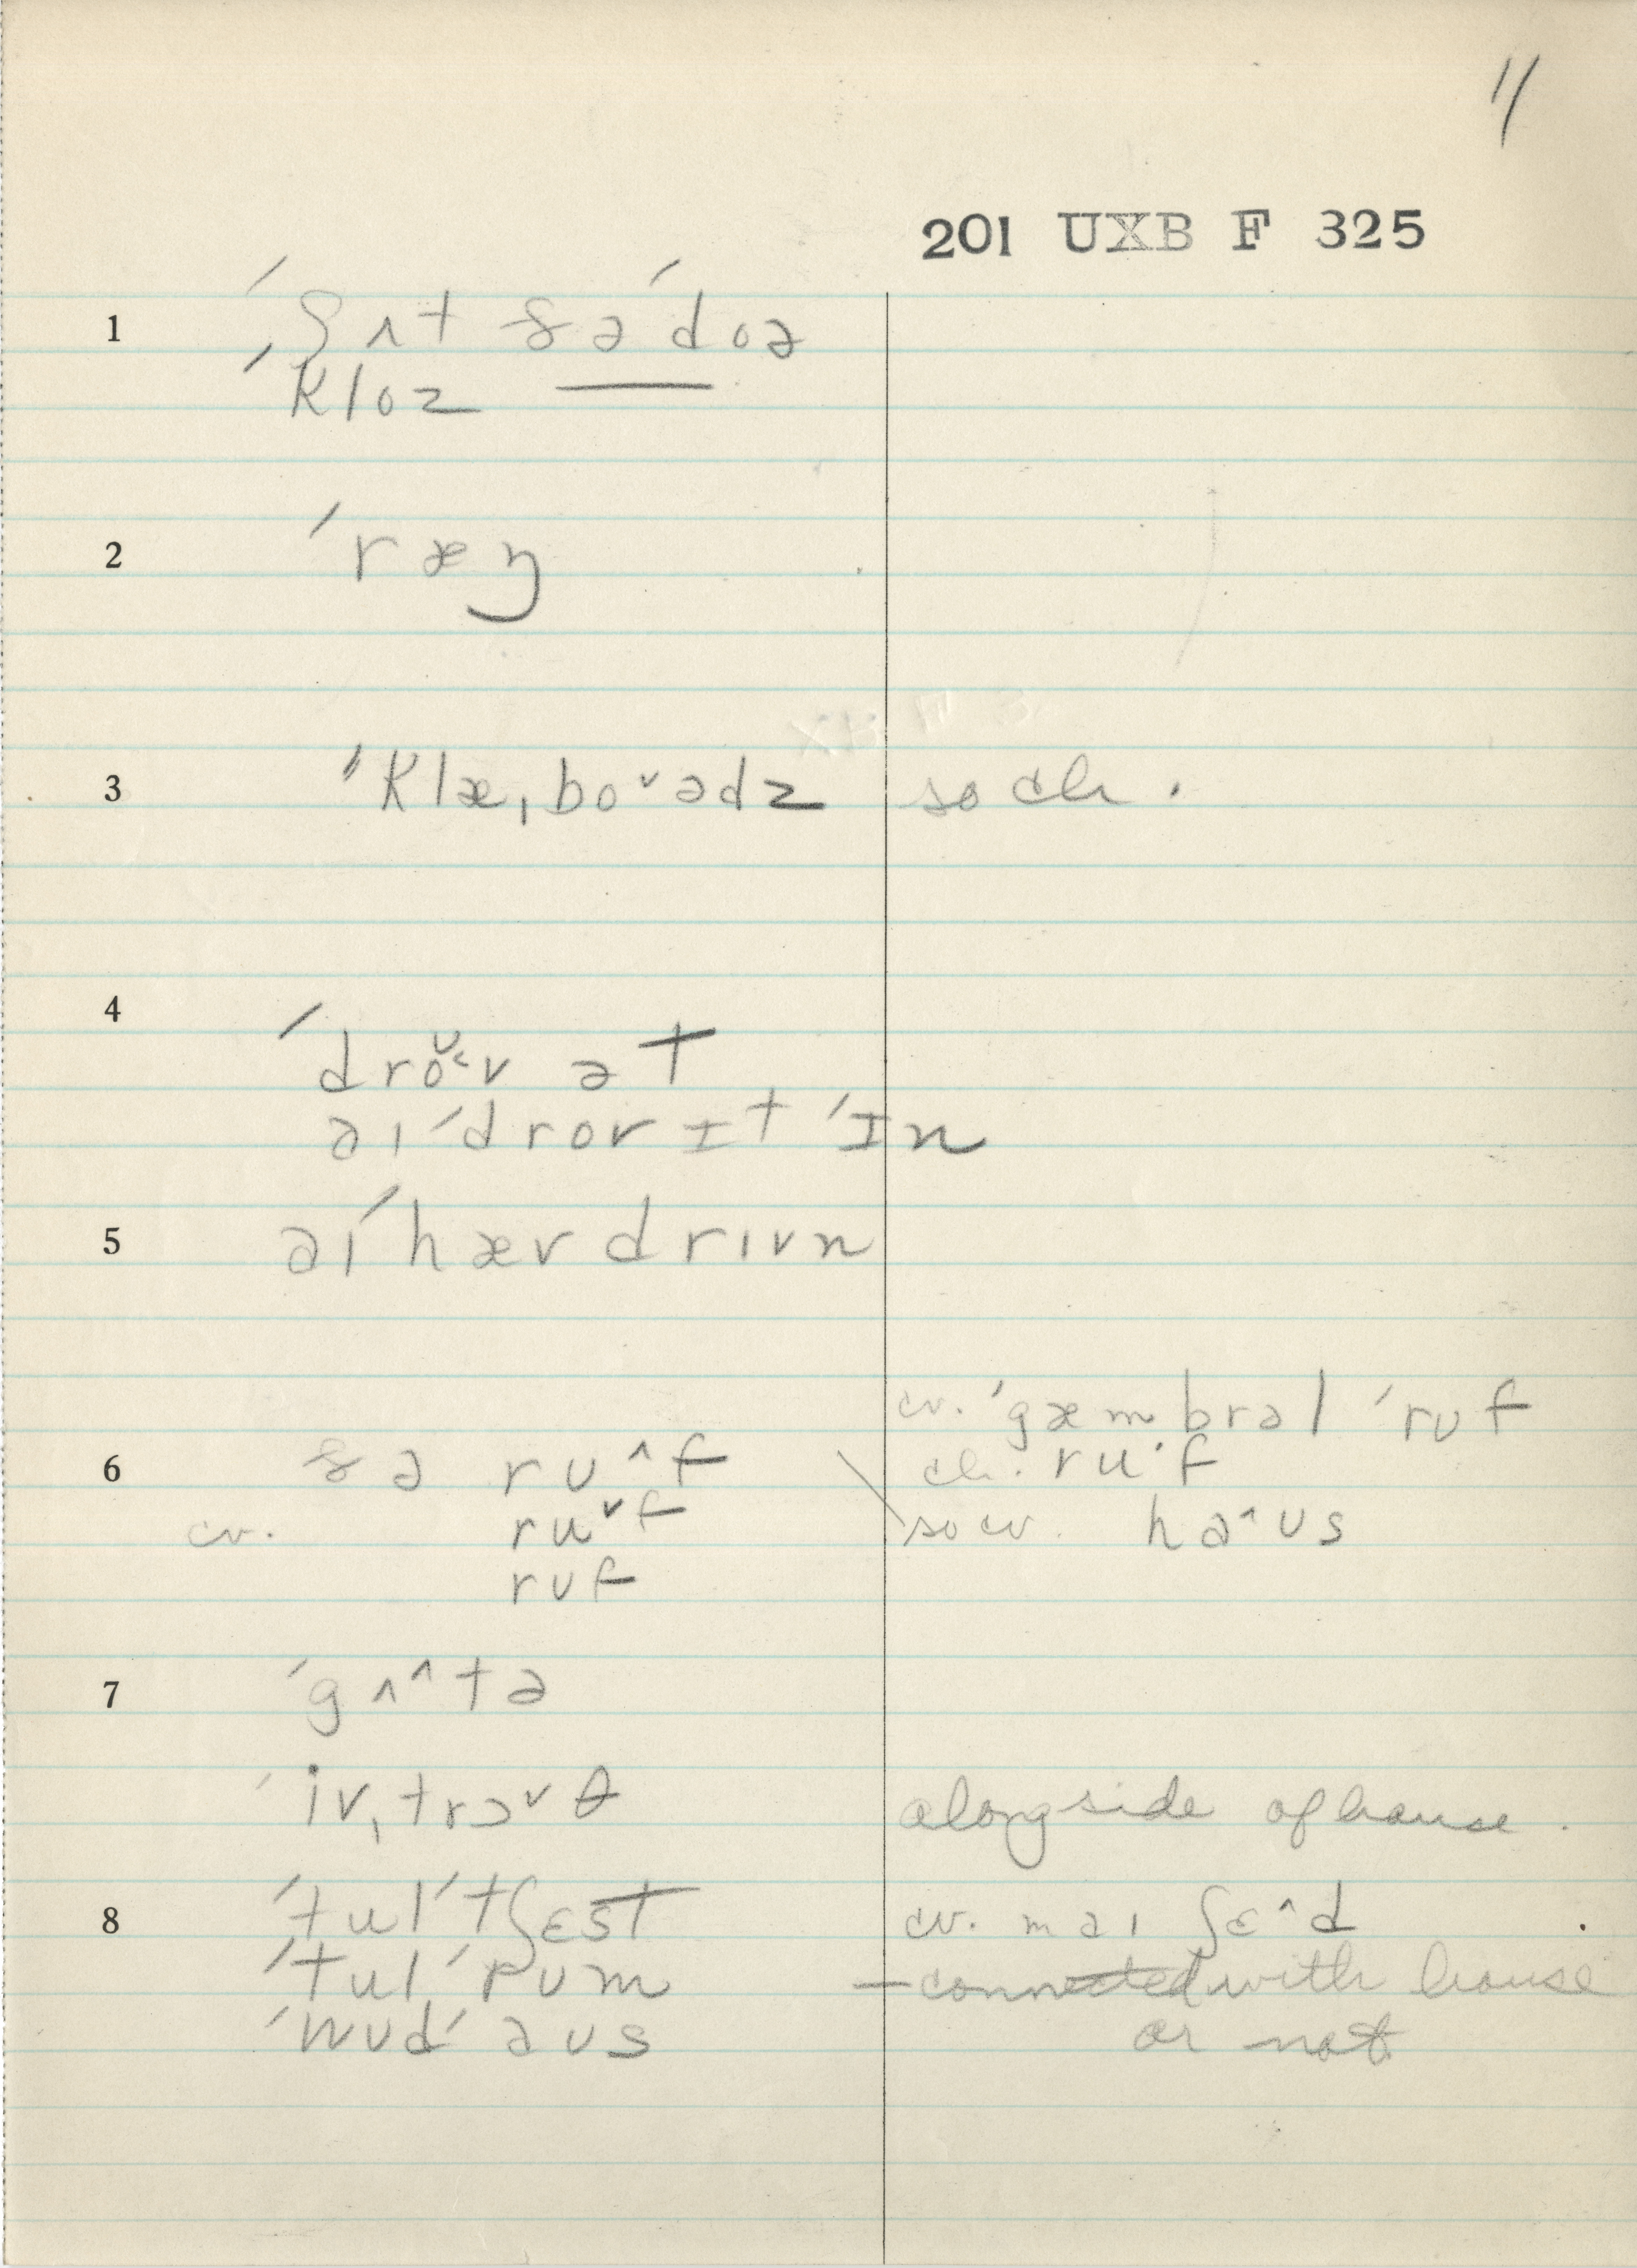 11
201 UXB F 325
1 ˈʃʌt ðəˈdoə
ˈkloz ——
2 ˈræŋ
3 ˈklæˌbo˅ədz so ch.
4 ˈdro˅v ət
aɪˈdrov ɪt ˈɪn
5 aɪˈhæv drɪvn
cv. ˈgæmbrəl ˈrʊf
6 ðə rʊ^f ch. ru·f
cv. ru˅f so cv. ha^ʊs
rʊf
7 ˈgʌ^tə
ˈivˌtrɔ˅θ alongside of house.
8 ˈtulˈtʃɛst cv. maɪ ʃɛ^d
ˈtulˈrum — connected with house
ˈwʊdˈaʊs or not